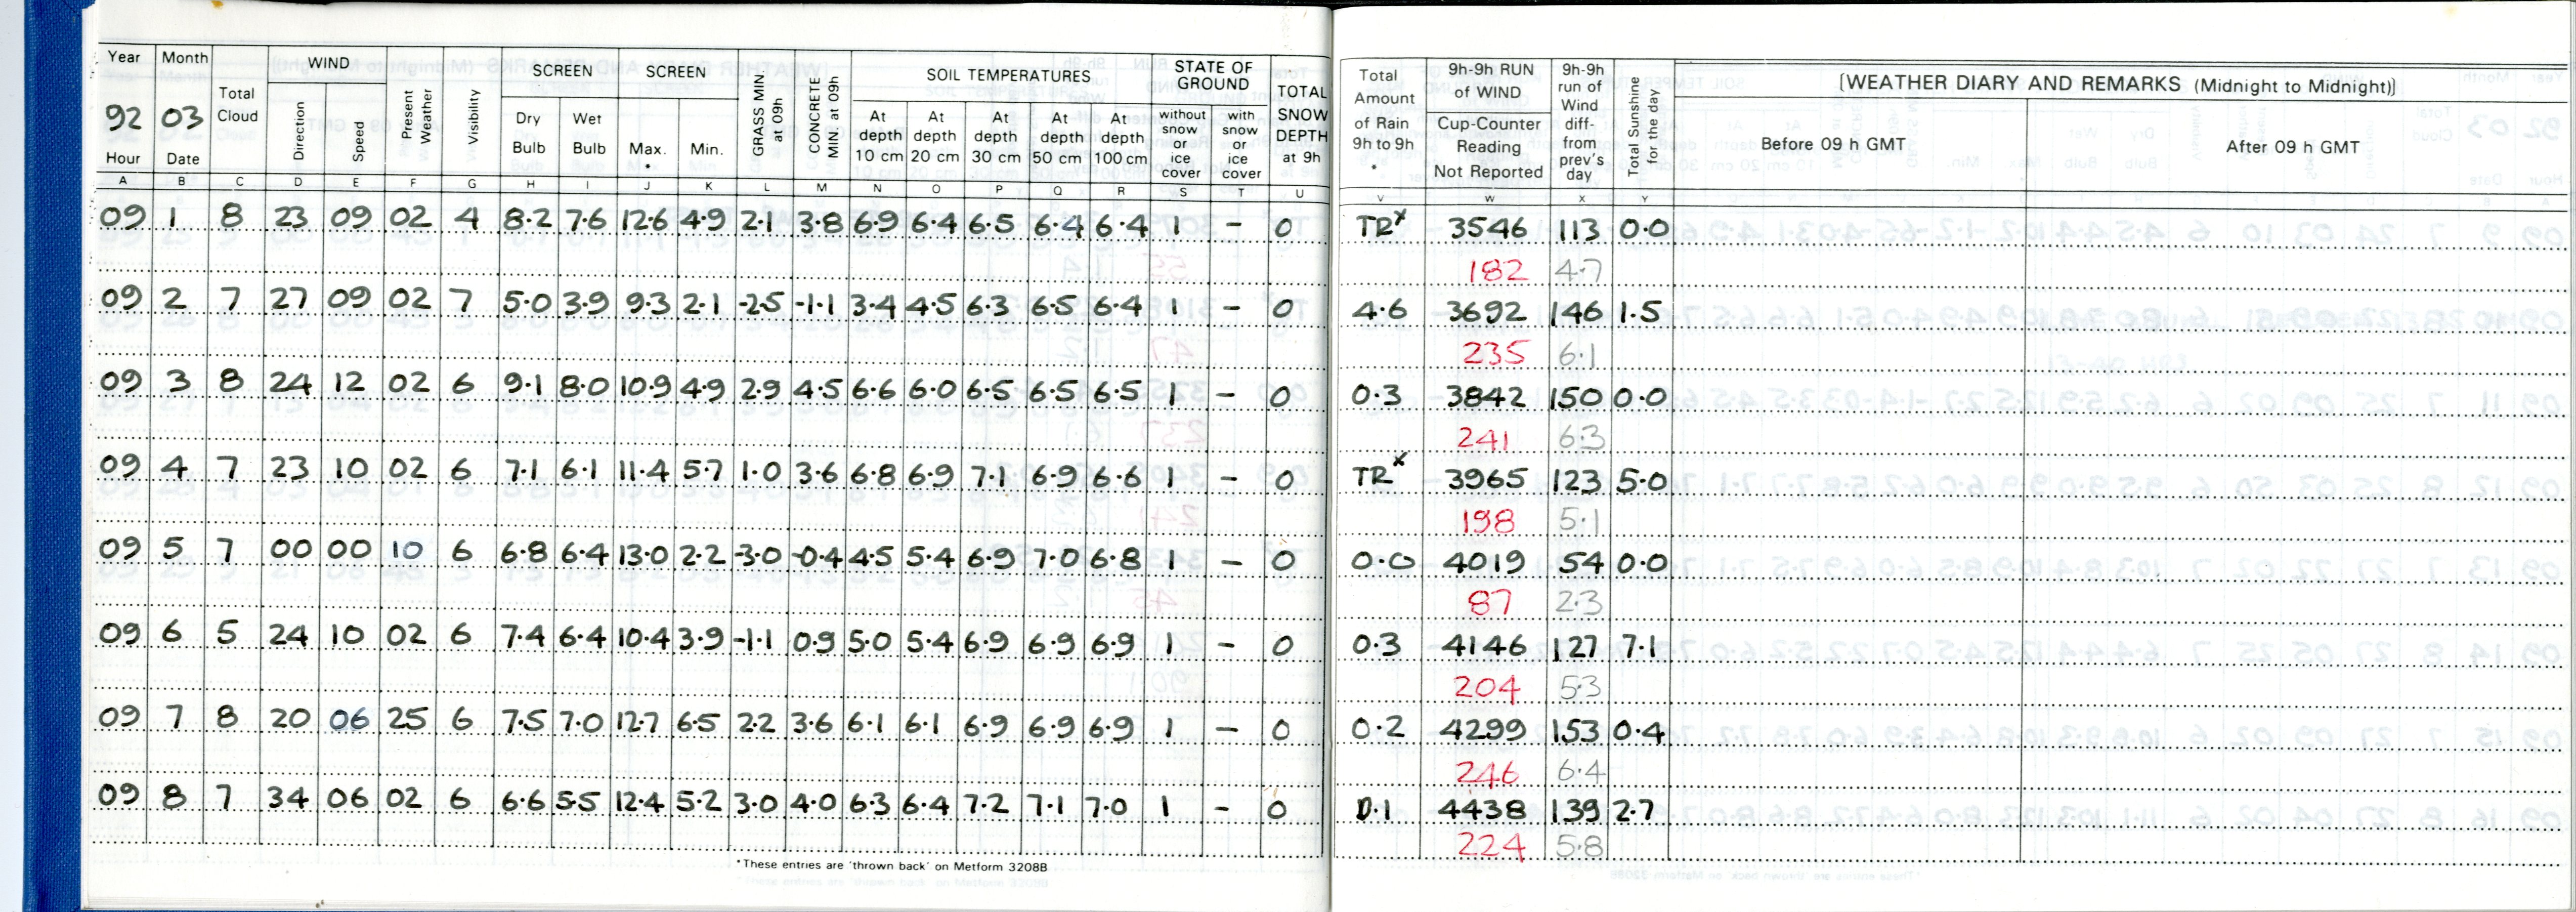 Year Month WIND SCREEN SCREEN SOIL TEMPERATURES STATE OF GROUND
92 03 Total Cloud Direction Speed Present Weather Visibility Dry Bulb Wet Bulb Max. * Min. GRASS MIN. at 09h CONCRETE MIN. at 09h At depth 10 cm At depth 20 cm At depth 30 cm At depth 50 cm At depth 100 cm without snow or ice cover with snow or ice cover TOTAL SNOW DEPTH at 9h
Hour Date
Total Amount of Rain 9h to 9h * 9h-9h RUN of WIND Cup-Counter Reading Not Reported 9h-9h run of Wind diff- from prev's day Total Sunshine for the day [WEATHER DIARY AND REMARKS (Midnight to Midnight)]
Before 09 h GMT After 09 h GMT
A B C D E F G H I J K L M N O P Q R S T U V W X Y
09 1 8 23 09 02 4 8.2 7.6 12.6 4.9 2.1 3.8 6.9 6.4 6.5 6.4 6.4 1 - 0 TRx 3546 113 0.0
182 4.7
09 2 7 27 09 02 7 5.0 3.9 9.3 2.1 -2.5 -1.1 3.4 4.5 6.3 6.5 6.4 1 - 0 4.6 3692 146 1.5
235 6.1
09 3 8 24 12 02 6 9.1 8.0 10.9 4.9 2.9 4.5 6.6 6.0 6.5 6.5 6.5 1 - 0 0.3 3842 150 0.0
241 6.3
09 4 7 23 10 02 6 7.1 6.1 11.4 5.7 1.0 3.6 6.8 6.9 7.1 6.9 6.6 1 - 0 TRx 3965 123 5.0
198 5.1
09 5 7 00 00 10 6 6.8 6.4 13.0 2.2 -3.0 -0.4 4.5 5.4 6.9 7.0 6.8 1 - 0 0.0 4019 54 0.0
87 2.3
09 6 5 24 10 02 6 7.4 6.4 10.4 3.9 -1.1 0.9 5.0 5.4 6.9 6.9 6.9 1 - 0 0.3 4146 127 7.1
204 5.3
09 7 8 20 06 25 6 7.5 7.0 12.7 6.5 2.2 3.6 6.1 6.1 6.9 6.9 6.9 1 - 0 0.2 4299 153 0.4
246 6.4
09 8 7 34 06 02 6 6.6 5.5 12.4 5.2 3.0 4.0 6.3 6.4 7.2 7.1 7.0 1 - 0 0.1 4438 139 2.7
224 5.8
*These entries are 'thrown back' on Metform 3208B